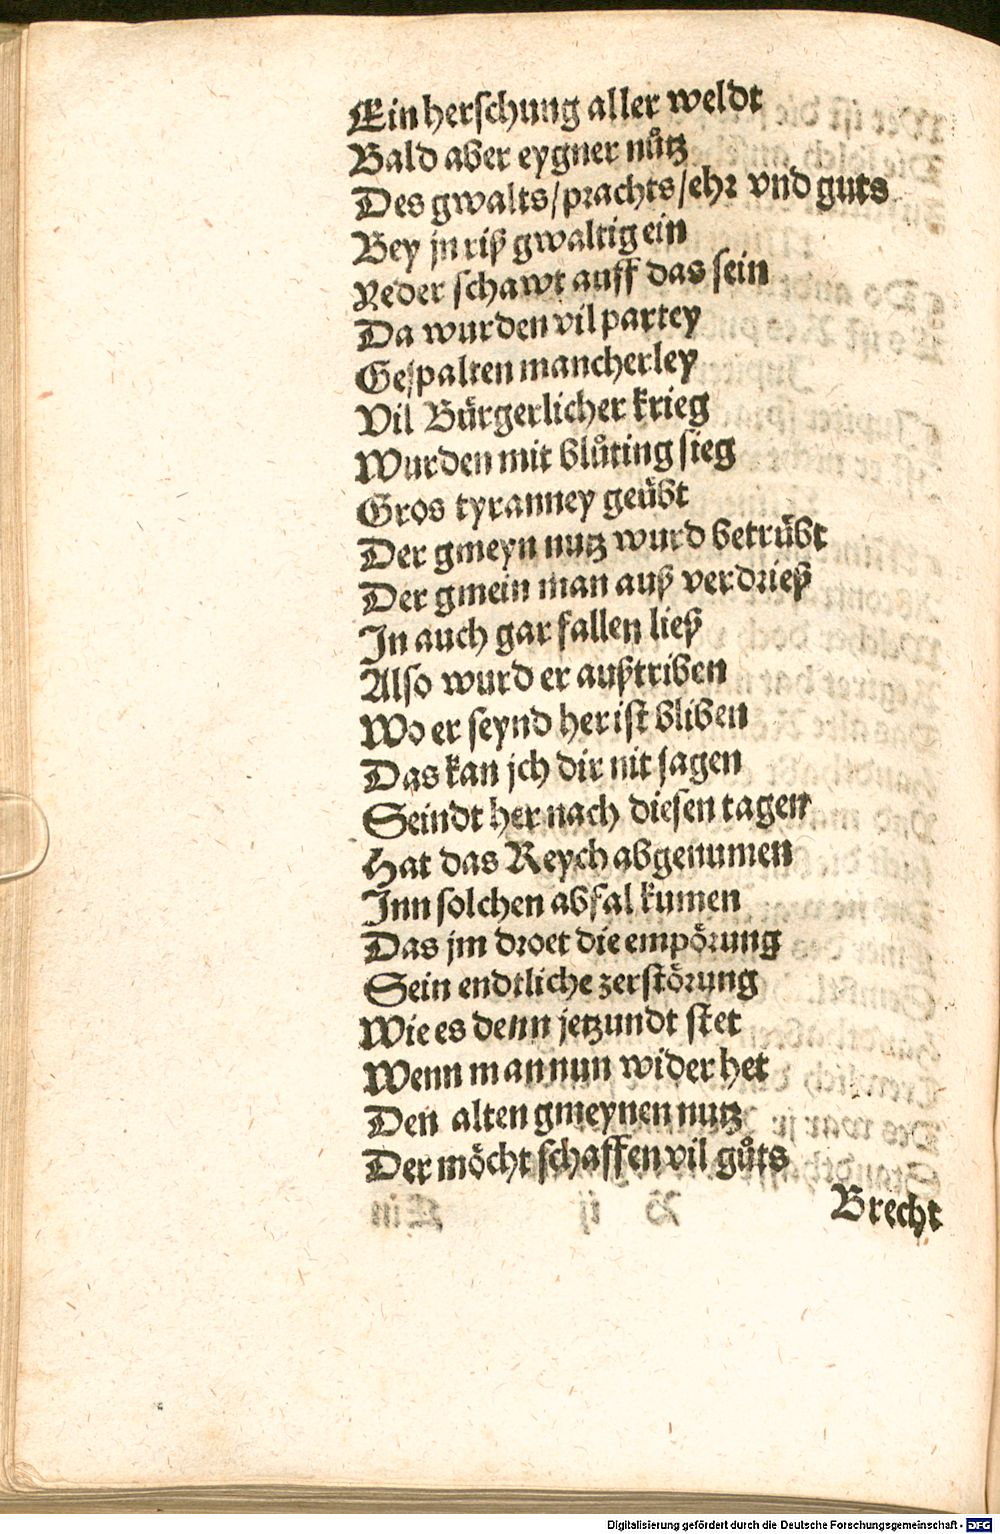 Ein herschung aller weldt
Bald aber eygner nůtz
Des gwalts/prachts/ehr vnd guts
Bey jn riß gwaltig ein
Yeder schawt auff das sein
Da wurden vil partey
Gespalten mancherley
Vil Bürgerlicher krieg
Wurden mit blůting sieg
Gros tyranney geübt
Der gmeyn nutz wurd betrübt
Der gmein man auß verdrieß
In auch gar fallen ließ
Also wurd er außtriben
Wo er seynd her ist bliben
Das kan jch dir nit sagen
Seindt her nach diesen tagen
Hat das Reych abgenumen
Inn solchen abfal kumen
Das jm droet die empörung
Sein endtliche zerstörung
Wie es denn jetzundt stet
Wenn man nun wider het
Den alten gmeynen nutz
Der möcht schaffen vil gůts
Brecht
Digitalisierung gefördert durch die Deutsche Forschungsgemeinschaft - DFG